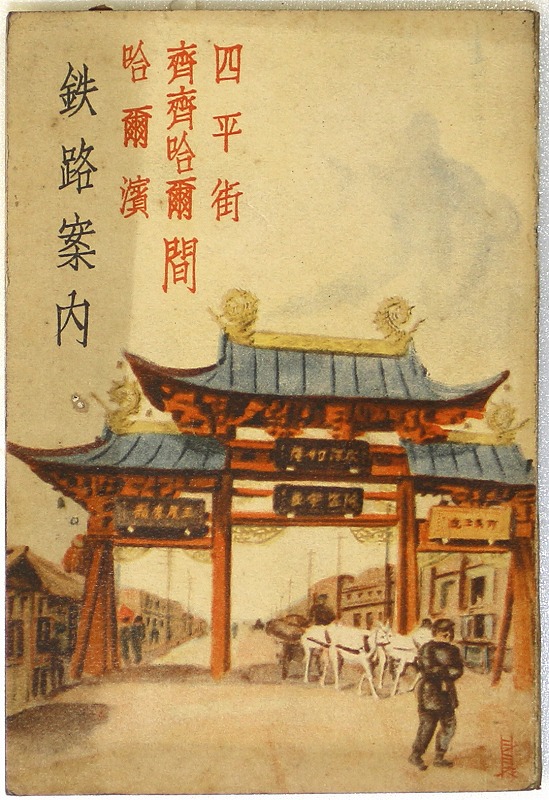 四平街
齊齊哈爾間
哈爾濱
鉄路案内